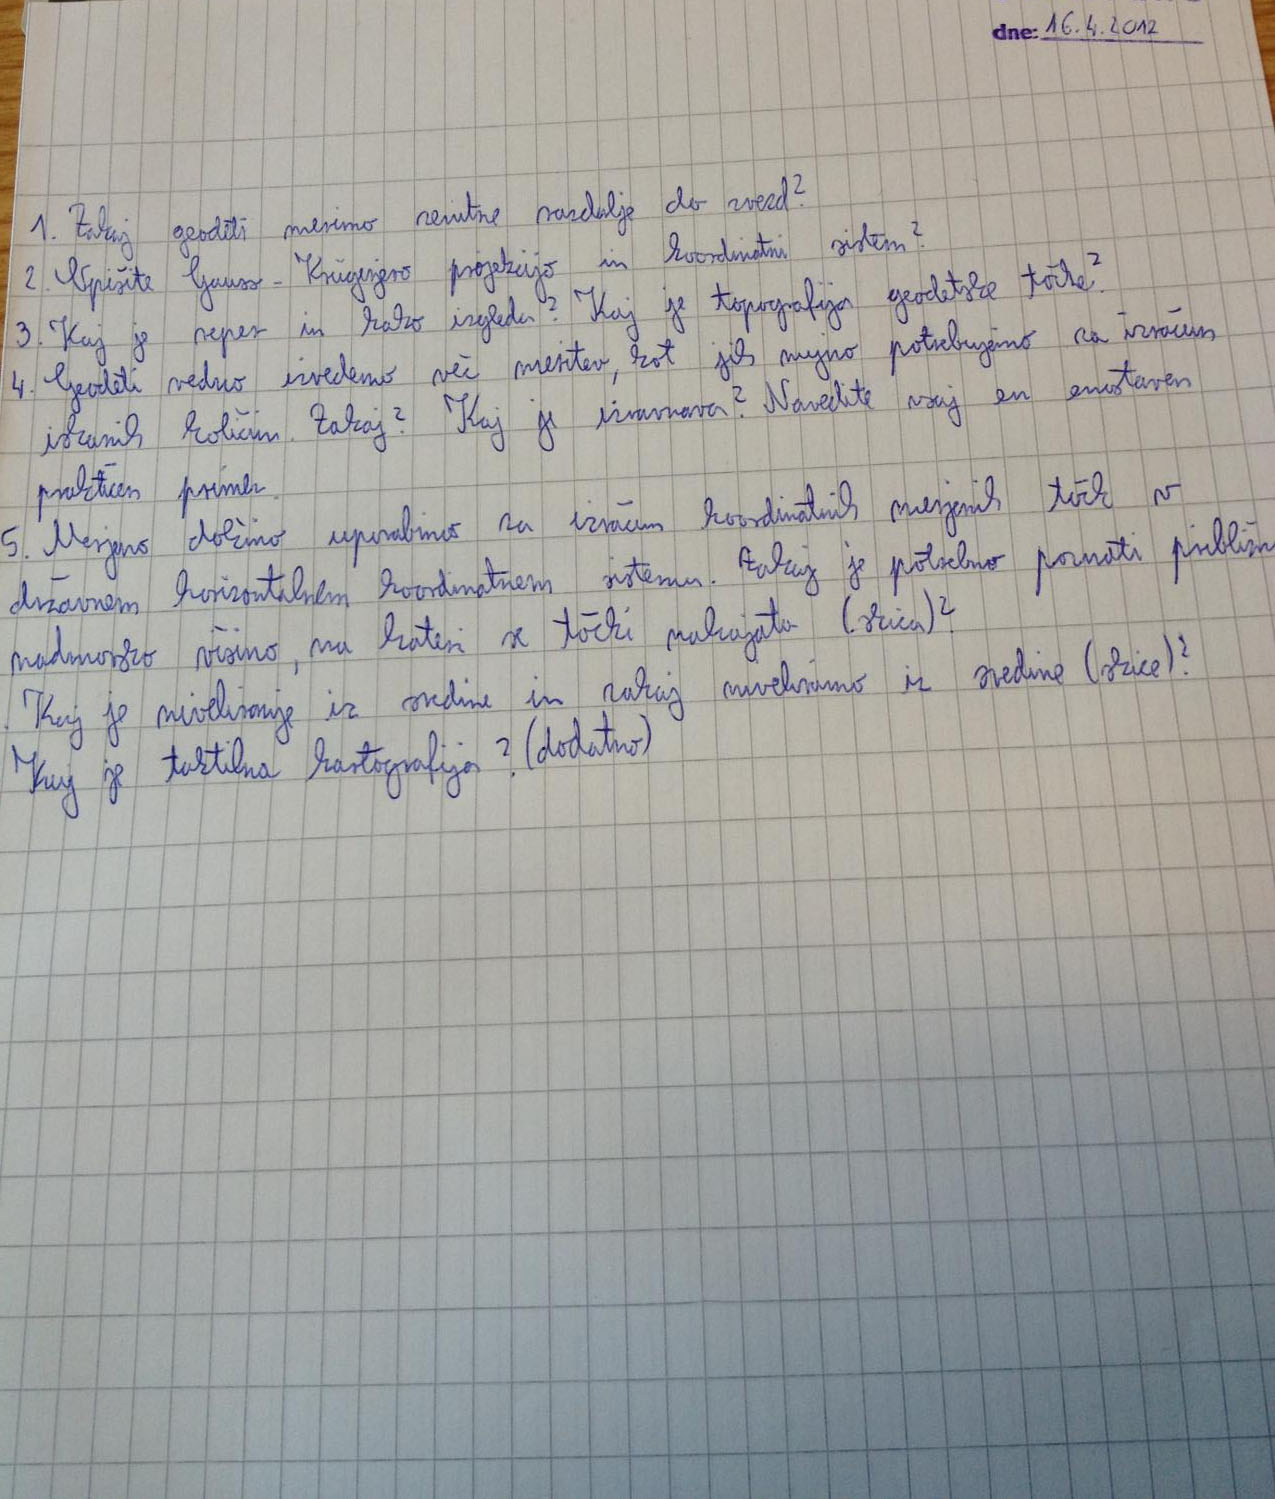 dne: 16.4.2012
1. Zakaj geodeti merimo zenitne razdalje do zvezd?
2. Opišite Gauss-Krügerjevo projekcijo in koordinatni sistem?
3. Kaj je reper in kako izgleda? Kaj je topografija geodetske točke?
4. Geodeti vedno izvedemo več meritev, kot jih nujno potrebujemo za izračun
iskanih količin. Zakaj? Kaj je izravnava? Navedite vsaj en enostaven
praktičen primer.
5. Merjeno dolžino uporabimo za izračun koordinatnih merjenih točk v
državnem horizontalnem koordinatnem sistemu. Zakaj je potrebno poznati približn
nadmorsko višino, na kateri se točki nahajata (skica)?
. Kaj je niveliranje iz sredine in zakaj niveliramo iz sredine (skice)?
Kaj je taktilna kartografija? (dodatno)